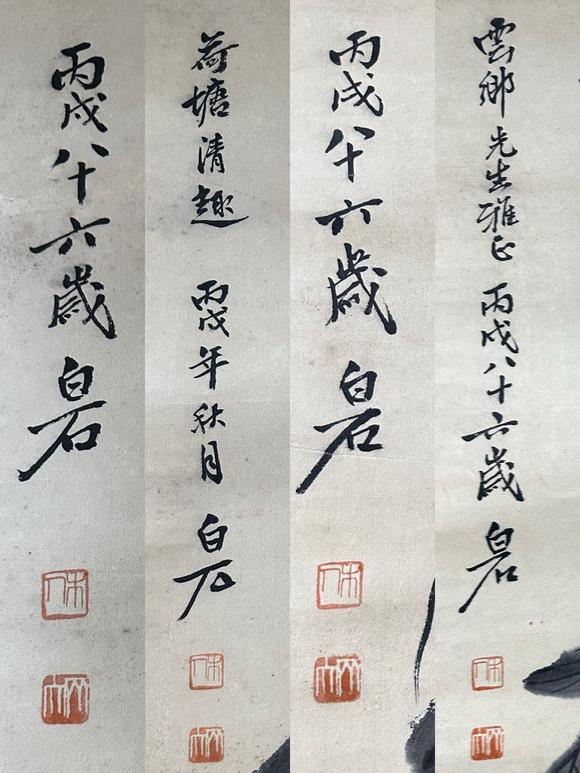 丙戌八十六歲 白石
木人
荷塘清趣 丙戌年秋月 白石
木人
丙戌八十六歲 白石
木人
雲鄉先生雅正 丙戌八十六歲 白石
木人